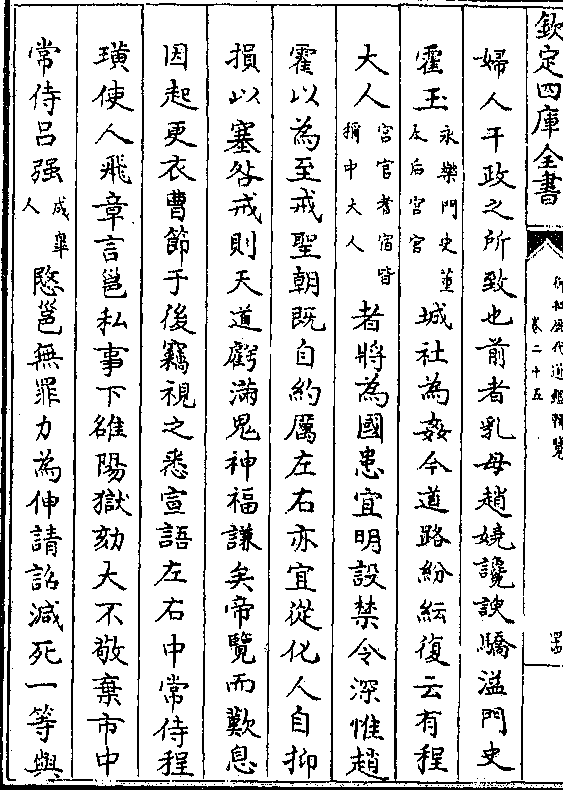 欽定四庫全書
御批歷代通鑑輯覽
卷二十五
婦人干政之所致也前者乳母趙嬈讒諛驕溢門史
霍玉永樂門史董太后宮官城社為姦今道路紛紜復云有程
大人宮官耆宿皆稱中大人者將為國患宜明設禁令深惟趙
霍以為至戒聖朝既自約厲左右亦宜從化人自抑
損以塞咎戒則天道虧滿鬼神福謙矣帝覽而歎息
因起更衣曹節于後竊視之悉宣語左右中常侍程
璜使人飛章言邕私事下雒陽獄劾大不敬棄市中
常侍呂强成臯人愍邕無罪力為伸請詔減死一等與